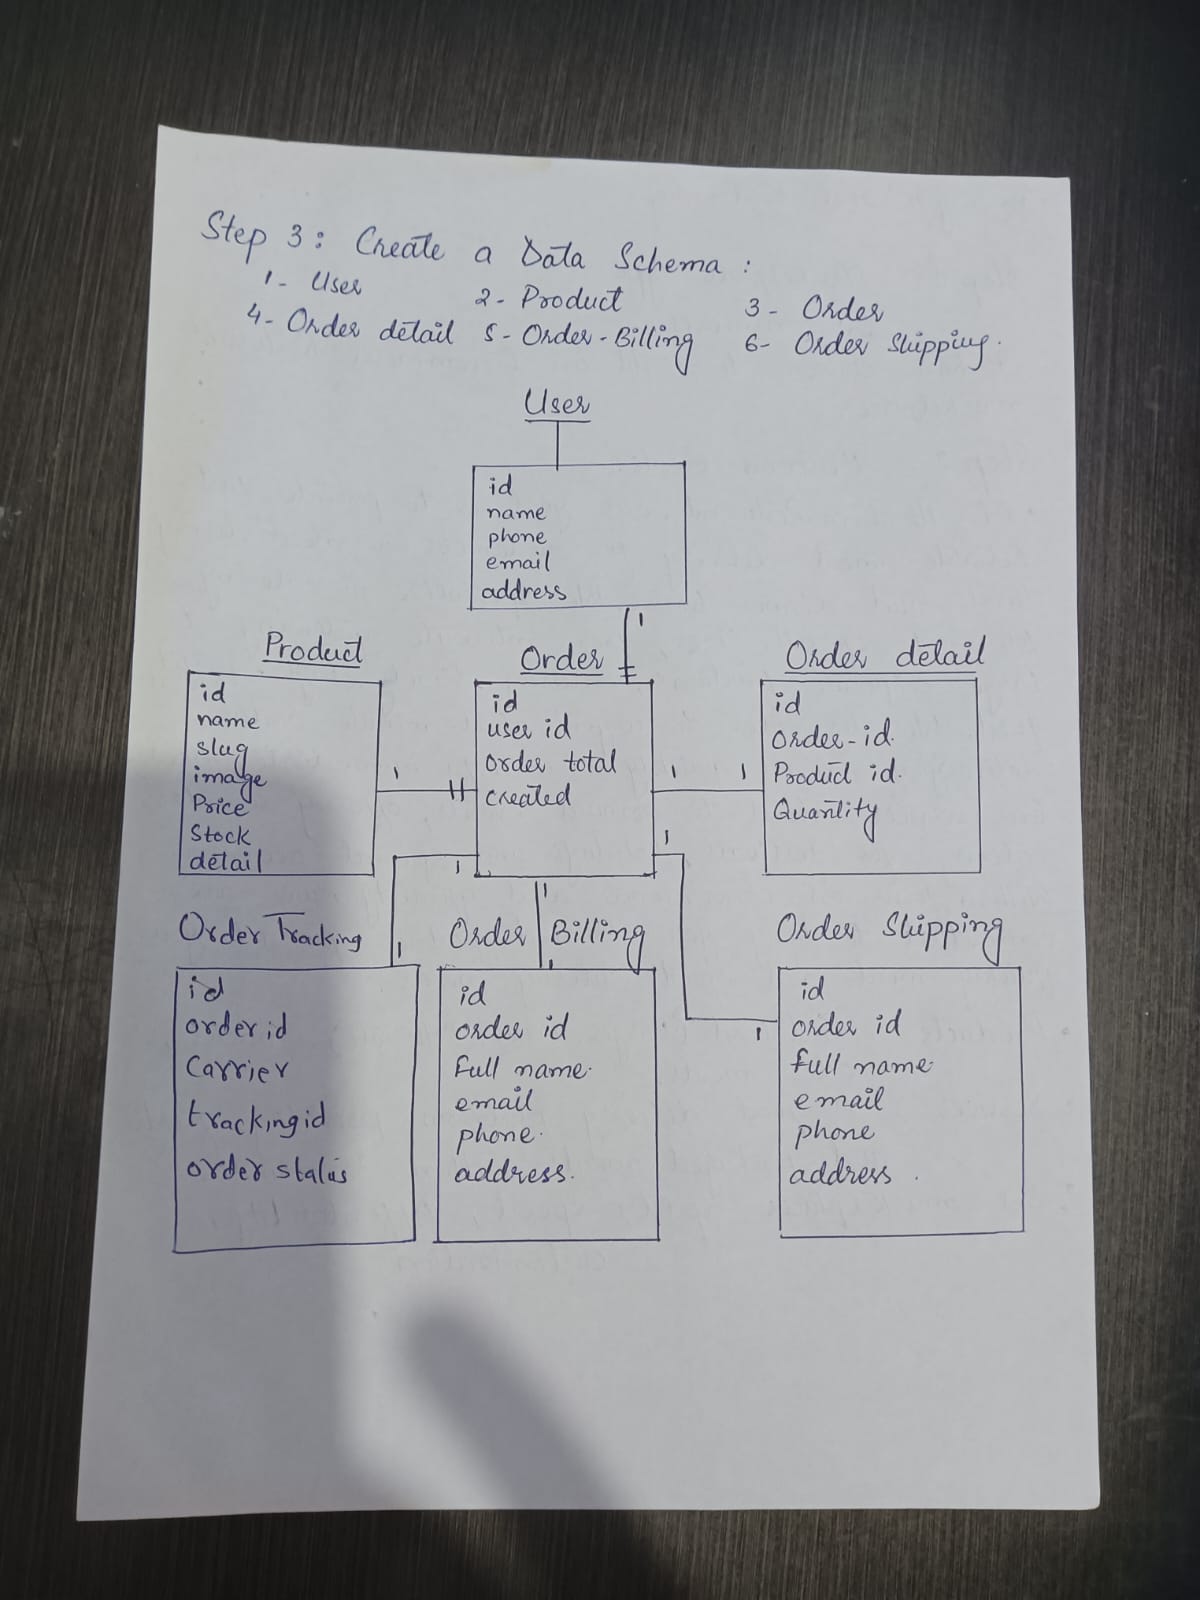 Step 3: Create a Data Schema :
1- User 2- Product 3- Order
4- Order detail 5- Order-Billing 6- Order Shipping.
User
id
name
phone
email
address
1
Product
id
name
slug
image
Price
Stock
detail
1
Order
id
user id
order total
created
1 1
1
1
1
Order detail
id
Order-id.
Product id.
Quantity
Order Tracking
1
id
order id
Carrier
tracking id
order status
Order Billing
1
id
order id
Full name.
email
phone.
address.
Order Shipping
1
id
order id
full name.
email
phone
address .